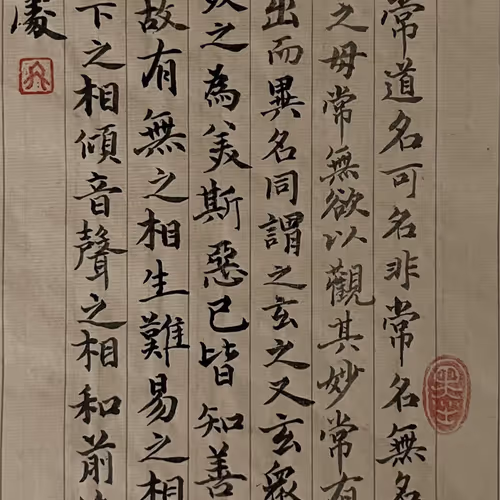 常道名可名非常名無名
之母常無欲以觀其妙常有
出而異名同謂之玄之又玄眾
之為美斯惡已皆知善
故有無之相生難易之相
下之相傾音聲之相和前
凌